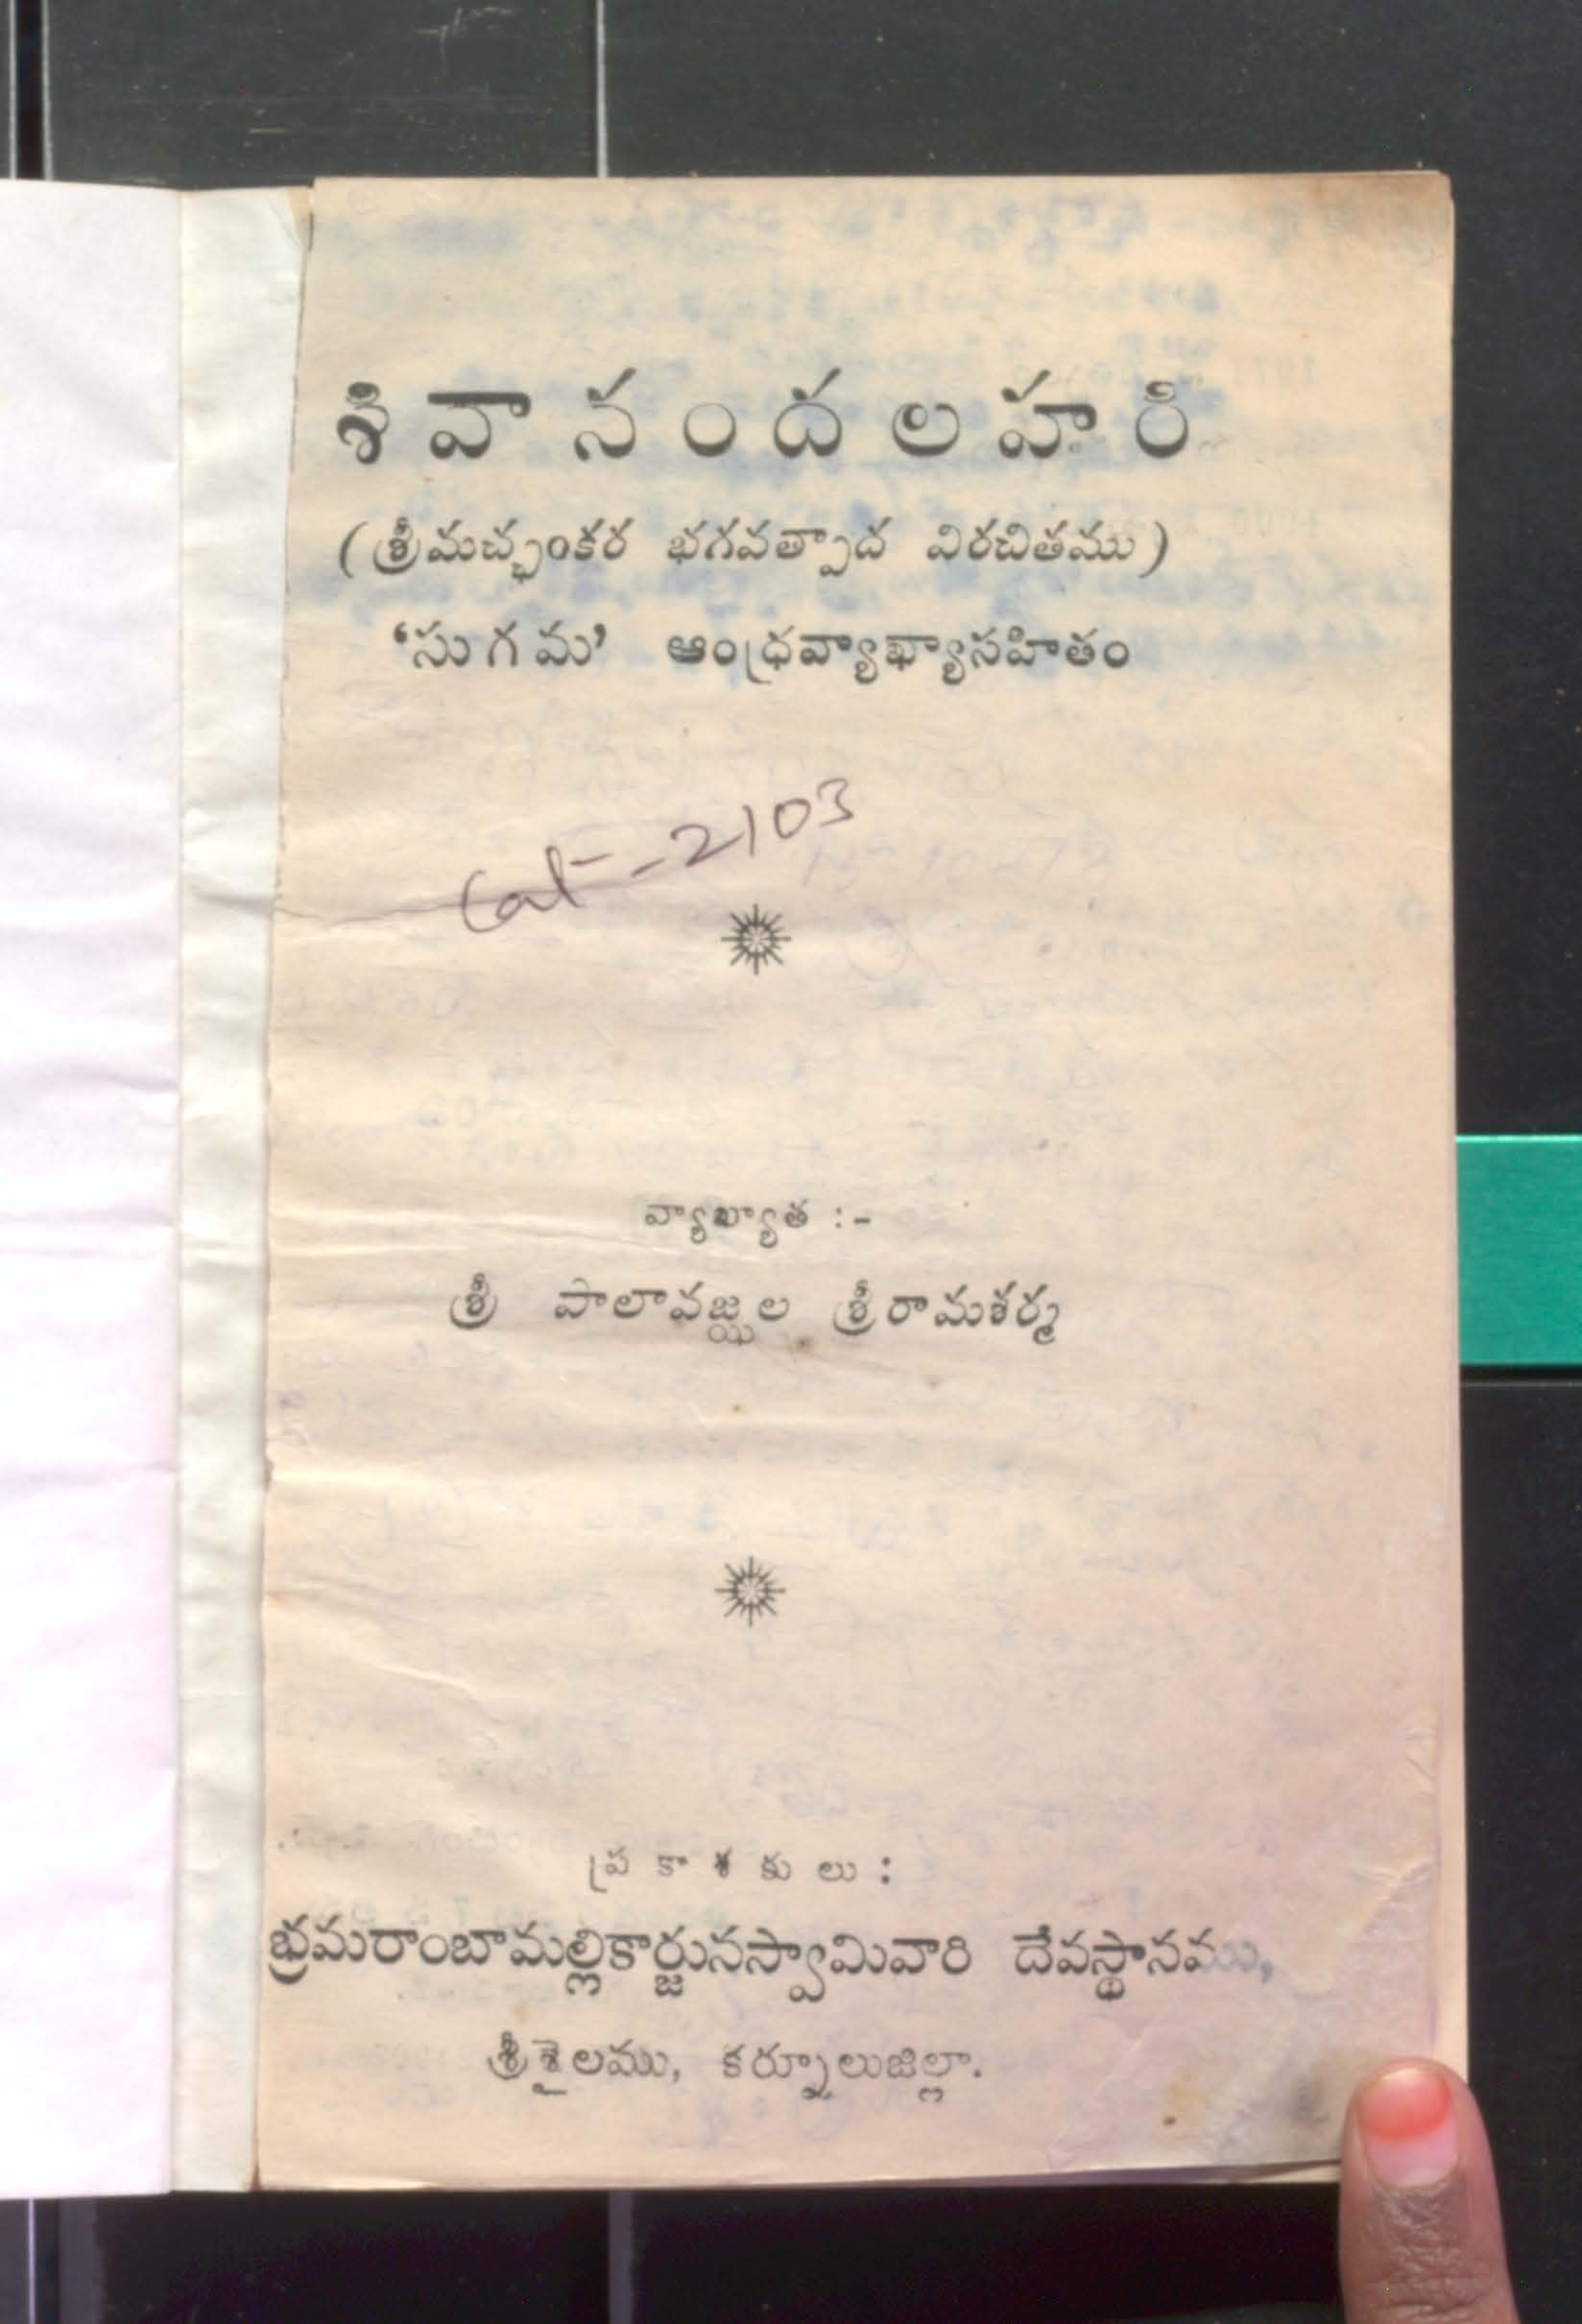 శివానందలహరి
(శ్రీమచ్ఛంకర భగవత్పాద విరచితము)
‘సుగమ’ ఆంధ్రవ్యాఖ్యాసహితం
Cat - 2103
వ్యాఖ్యాత :-
శ్రీ పాలావజ్ఝల శ్రీరామశర్మ
ప్రకాశకులు :
భ్రమరాంబామల్లికార్జునస్వామివారి దేవస్థానము,
శ్రీశైలము, కర్నూలుజిల్లా.